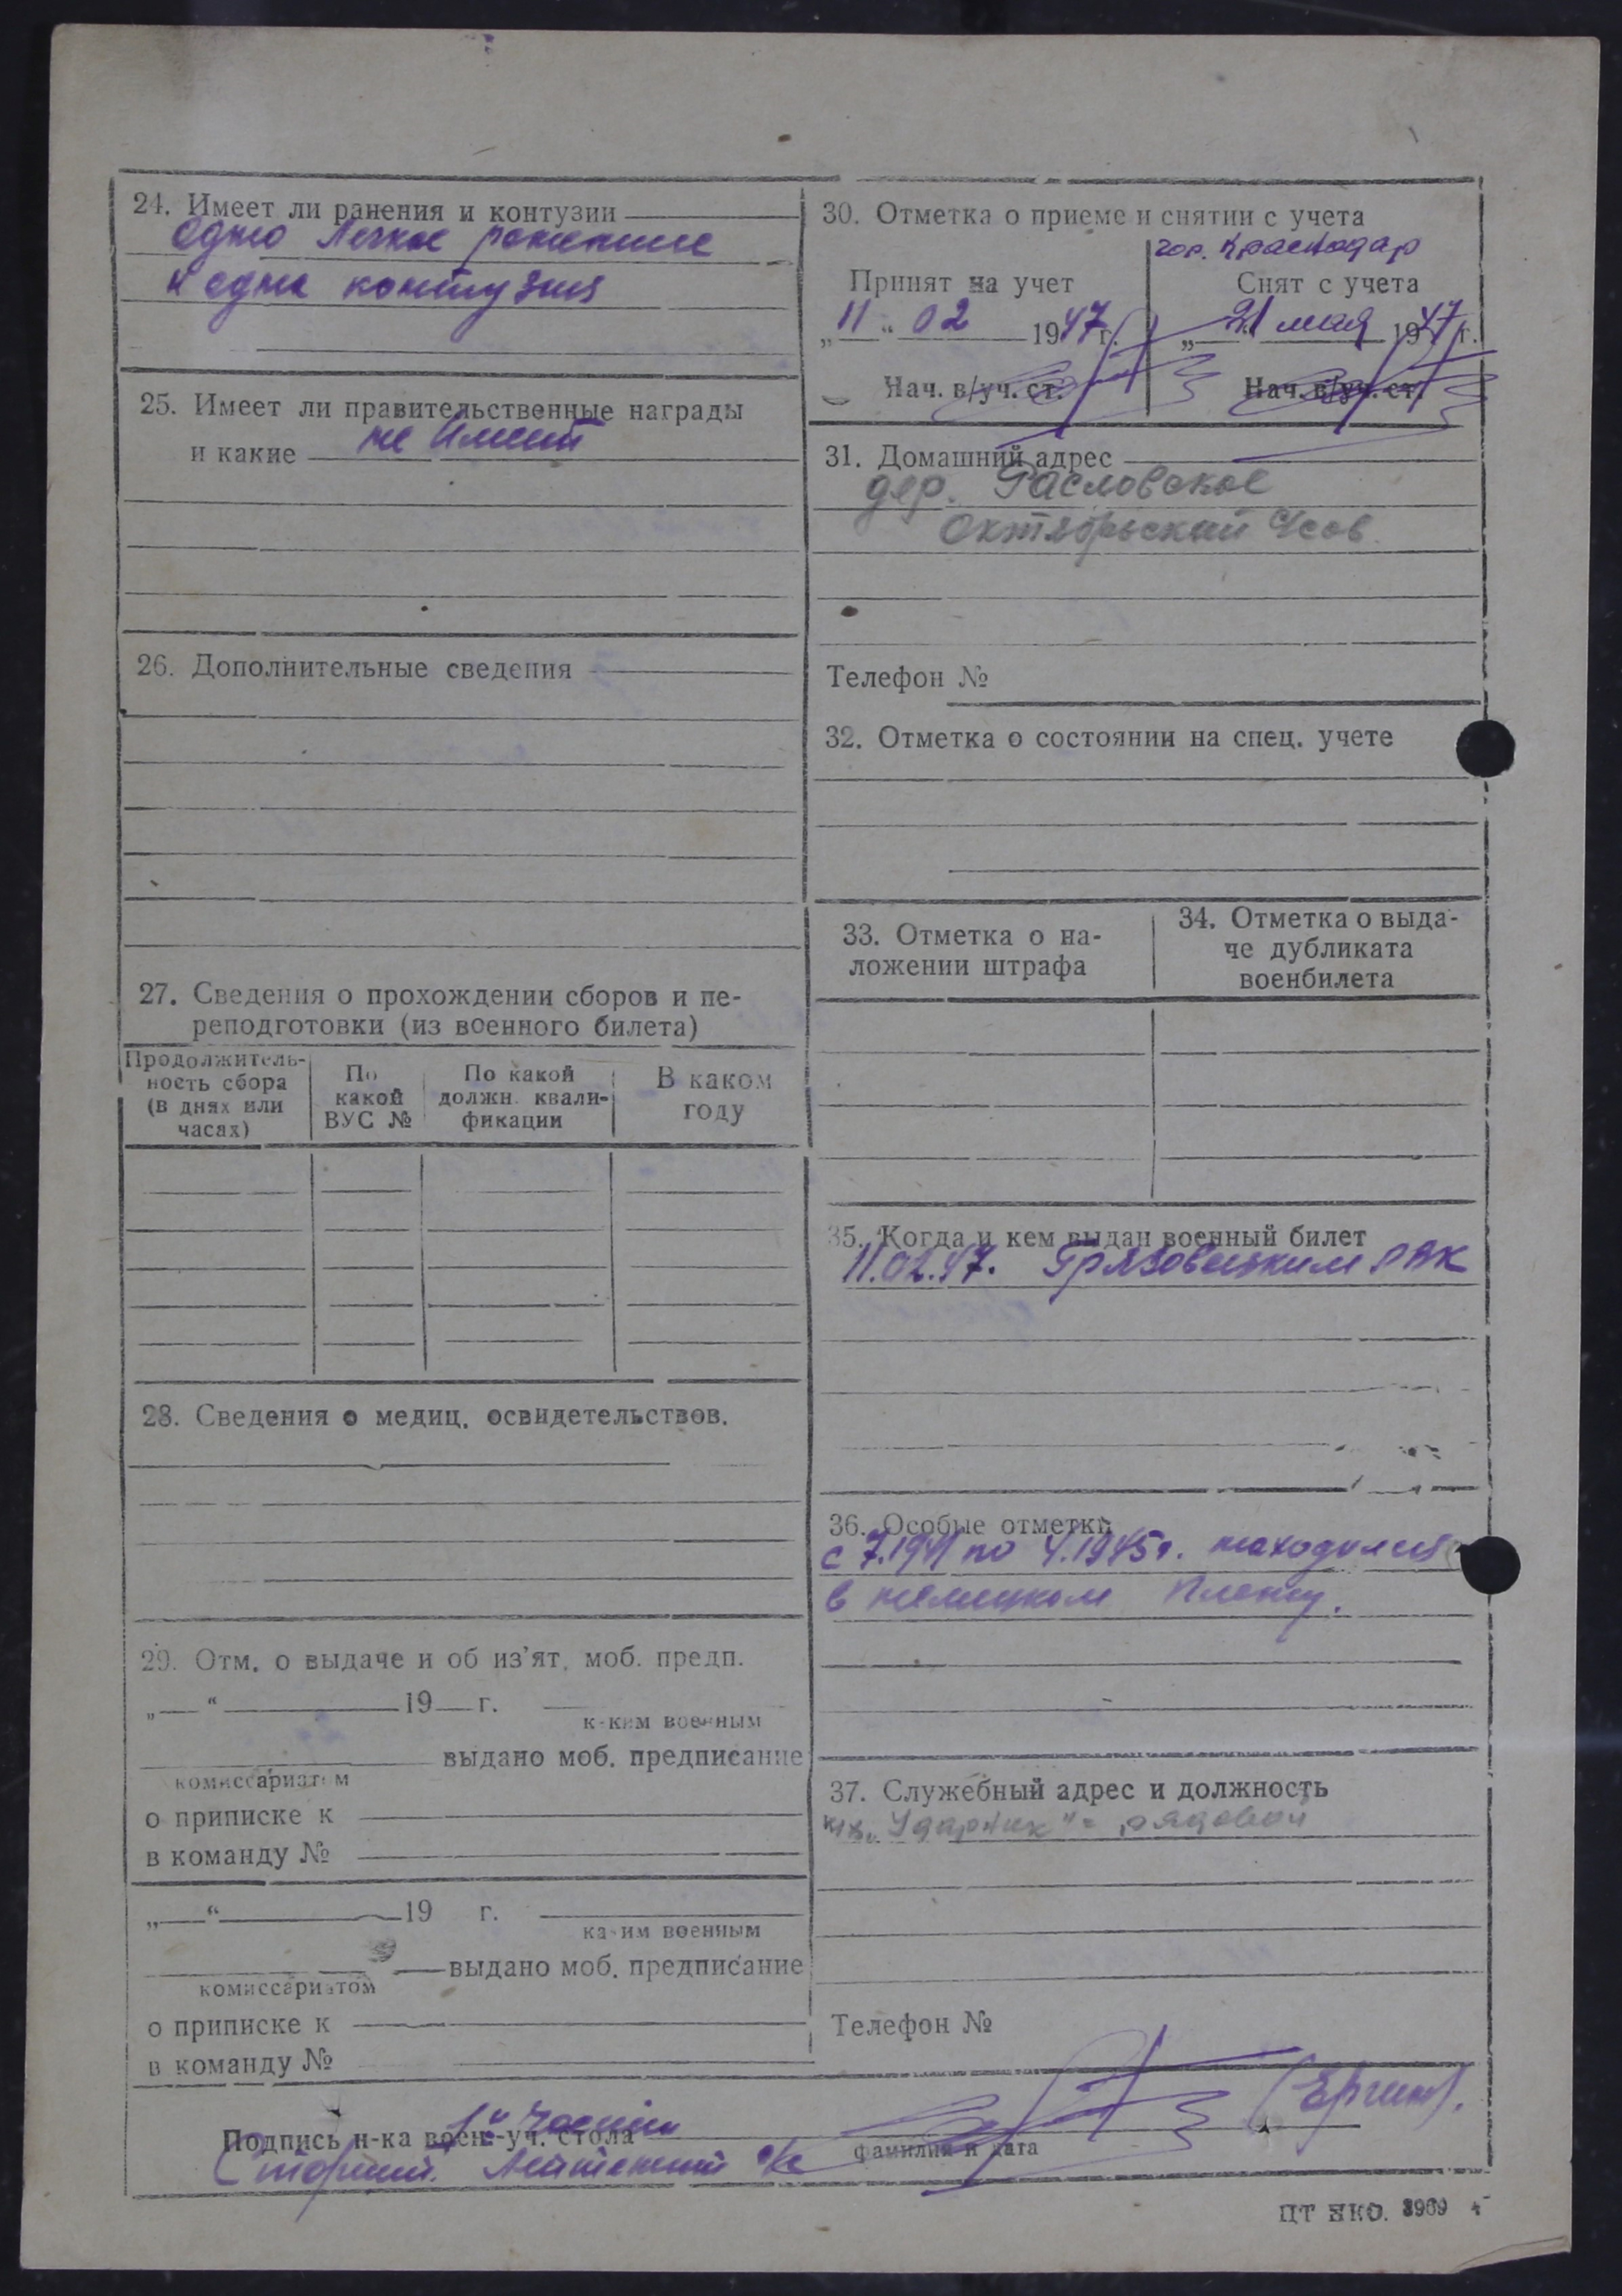 24. Имеет ли ранения и контузии
Одно легкое ранение
и одна контузия
25. Имеет ли правительственные награды
и какие не имеет
26. Дополнительные сведения
27. Сведения о прохождении сборов и пе-
реподготовки (из военного билета)
Продолжитель-
ность сбора
(в днях или
часах)
По
какой
ВУС №
По какой
должн. квали-
фикации
В каком
году
28. Сведения о медиц. освидетельствов.
29. Отм. о выдаче и об из'ят. моб. предп.
„ “ 19 г.
каким военным
выдано моб. предписание
комиссариатом
о приписке к
в команду №
„ “ 19 г.
каким военным
выдано моб. предписание
комиссариатом
о приписке к
в команду №
30. Отметка о приеме и снятии с учета
гор. Краснодар
Принят на учет
„11“ 02 1947 г.
Нач. в/уч. ст.
Снят с учета
„21 мая 1947 г.
Нач. в/уч. ст.
31. Домашний адрес
дер. Расловское
Октябрьский Усов.
Телефон №
32. Отметка о состоянии на спец. учете
33. Отметка о на-
ложении штрафа
34. Отметка о выда-
че дубликата
военбилета
35. Когда и кем выдан военный билет
11.02.47. Грязовецким РВК
36. Особые отметки
с 7.1941 по 4.1945г. находился
в немецком плену.
37. Служебный адрес и должность
к-з „Ударник" - рядовой
Телефон №
Подпись н-ка воен.-уч. стола
1й части
Старший лейтенант
фамилия и дата
ПТ НКО. 3969